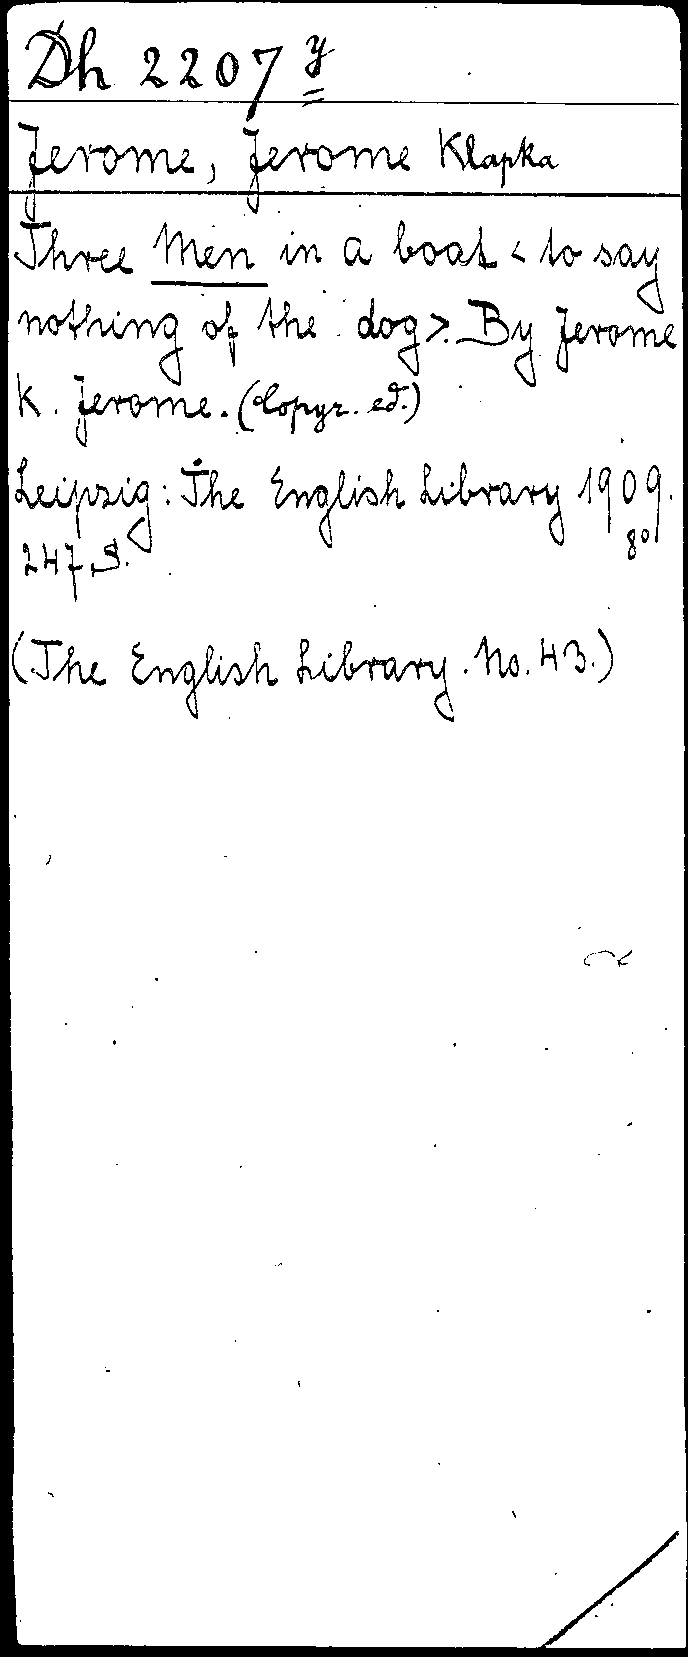 Dh 2207 y
Jerome, Jerome Klapka
Three Men in a boat < to say
nothing of the dog>. By Jerome
K. Jerome. (Copyr. ed.)
Leipzig: The English Library 1909.
8°
247 S.
(The English Library. No. 43.)